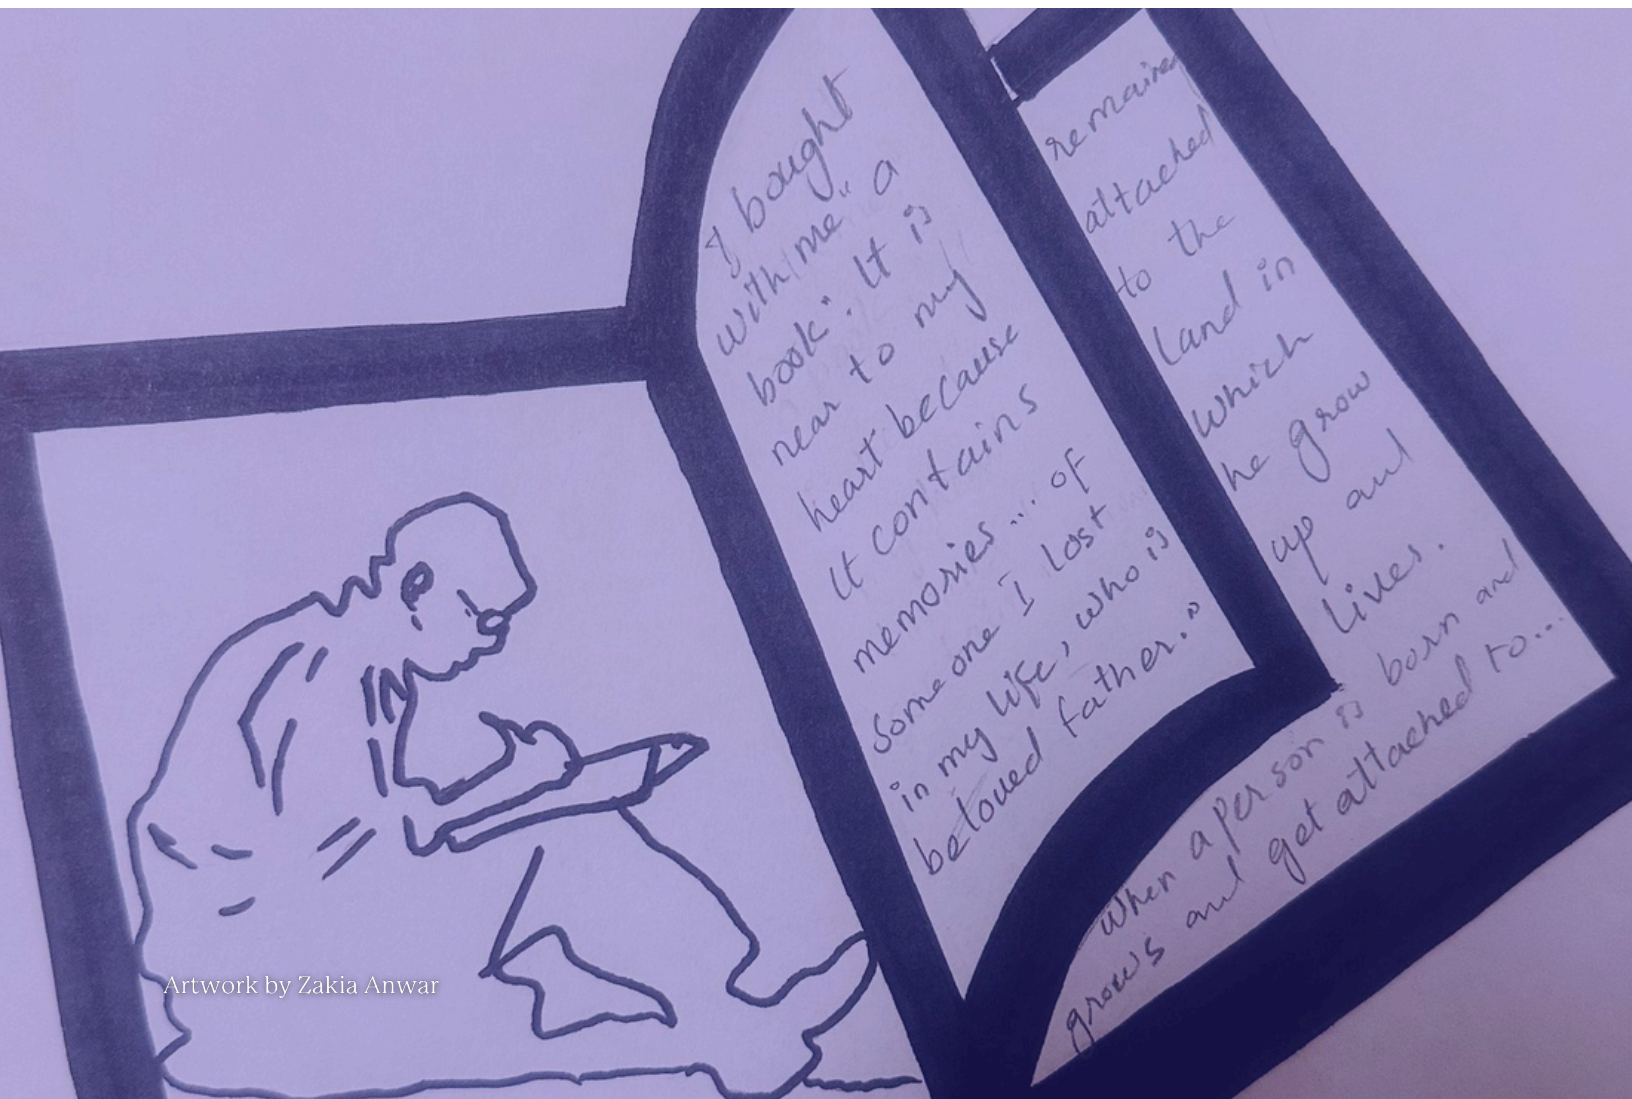 I bought
with me "a
book". It is
near to my
heart because
It contains
memories... of
someone I lost
in my life, who is
beloved father."
remained
attached
to the
land in
which
he grow
up and
lives.
When a person is born and
grows and get attached to...
Artwork by Zakia Anwar